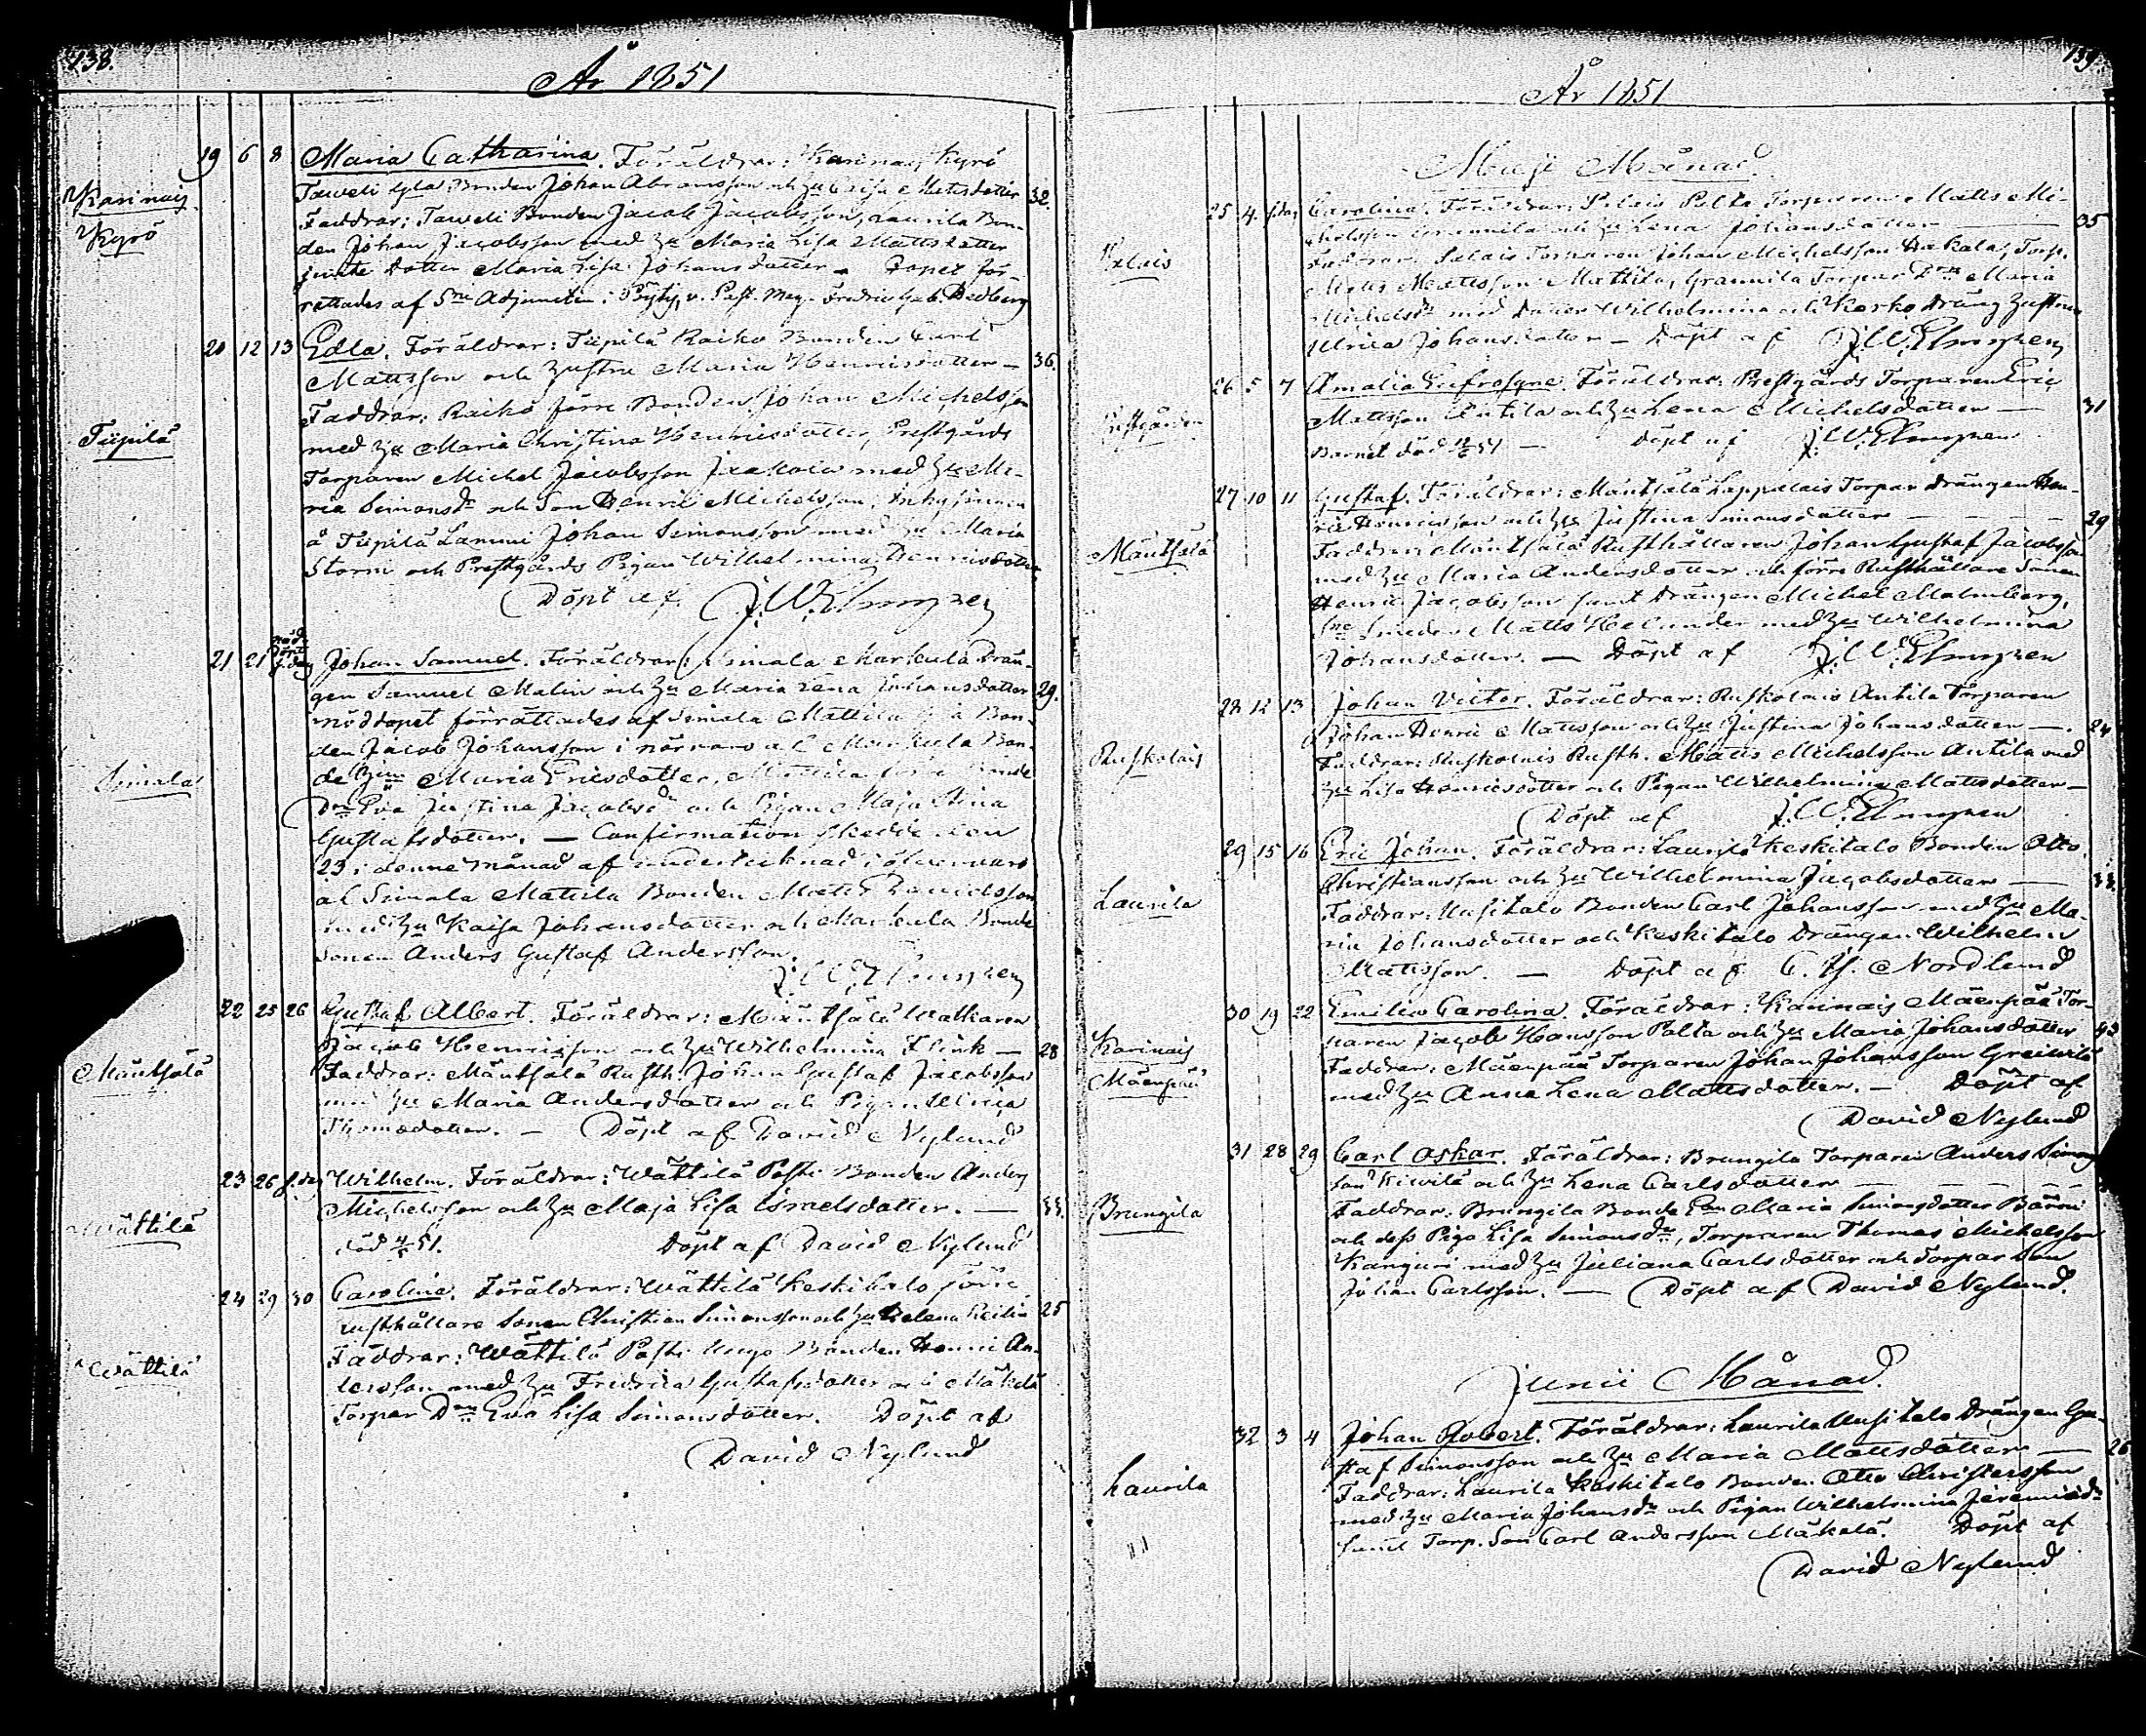 138.
År 1851
19 6 8 Maria Catharina. Föräldrar: Karinais Kyrö
Karinais
Kyrö
Taweli Gla Bonden Johan Abramsson och Hu Caisa Matsdotter 32.
Faddrar: Taweli Bonden Jacob Jacobsson, Laurila Bon-
den Johan Jacobsson med Hu Maria Lisa Mattsdotter
samt dotter Maria Lisa Johansdotter. Dopet för-
rättades af Adjuncten i Pöytis, v. Past. Mag. Fredric Gab. Hedberg
20 12 13 Edla. Föräldrar: Tiipilä Raiko Bonden Carl
Mattsson och Hustru Maria Henricsdotter — 36.
Tiipilä
Faddrar: Raiko förre Bonden Johan Michelsson
med Hu Maria Christina Henricsdotter, Prestgårds
Torparen Michel Jacobsson Jaakola med Hu Ma-
ria Simonsdr och Son Henric Michelsson, Inhysingen
å Tiipilä Lammi Johan Simonsson med Hu Maria
Storm och Prestgårds Pigan Wilhelmina Henricsdotter
Döpt af J. W. Elmgren
21 21 nöd-döpt f.dag Johan Samuel. Föräldrar: Simala Markula Drän-
gen Samuel Malin och Hu Maria Lena Johansdotter 29.
nöddopet förrättades af Simala Mattila Bon-
den Jacob Johansson i närvaro af Markula Bon-
Simala
de Maria Ericsdotter, Mattila förre Bonde
Eva Justina Jacobsdr och Pigan Maja Stina
Gustafsdotter. — Confirmation skedde den
23 i denne månad af undertecknad i öfvervaro
af Simala Mattila Bonden Matts Davidsson
med Hu Kaisa Johansdotter och Markula Bonde
Sonen Anders Gustaf Andersson.
J. W. Elmgren
22 25 26 Gustaf Albert. Föräldrar: Mäntsälä Watkaren
Jacob Henricsson och Hu Wilhelmina Flink — 28
Mäntsälä
Faddrar: Mäntsälä Rusth. Johan Gustaf Jacobsson
med Hu Maria Andersdotter och Pigan Ulrica
Thomasdotter. — Döpt af David Nylund
23 26 f.dag Wilhelm. Föräldrar: Wättilä Posti Bonden Anders
Michelsson och Hu Maja Lisa Israelsdotter. — 33.
Wättilä
död 4/5 51. Döpt af David Nylund
24 29 30 Carolina. Föräldrar: Wättilä Keskitalo förre
rusthållare Sonen Christian Simonsson och Hu Helena 25
Wättilä
Faddrar: Wättilä Posti Bonden Henric An-
dersson med Hu Fredrica Gustafsdotter och Mäkelä
Torpar Dn Eva Lisa Simonsdotter. Döpt af
David Nylund
139.
År 1851
Maji Månad.
25 4. f.dag Carolina. Föräldrar: Palta Torparen Matts Mi-
chelsson Grannila och Hu Lena Johansdotter 35
Faddrar: Torparen Johan Michelsson Hakala, Torp.
Matts Mattsson Mattila, Grannila Torpar Maria
Michelsdr med dotter Wilhelmina och Korko Dräng Hustrun
Ulrica Johansdotter — Döpt af J. W. Elmgren
26 5 7 Amalia Eufrosyne. Föräldrar: Prestgårds Torparen Eric
Prestgården
Mattsson Antila och Hu Lena Michelsdotter — 31
Barnet död 51 — Döpt af J. W. Elmgren
27 10 11 Gustaf. Föräldrar: Mäntsälä Lappalais Torpar drängen Hen-
ric Henricsson och Hu Justina Simonsdotter — 29
Mäntsälä
Faddrar: Mäntsälä Rusthållaren Johan Gustaf Jacobsson
med Hu Maria Andersdotter och förre Rusthållare Sonen
Henric Jacobsson samt Drängen Michel Malmberg,
Smeden Matts Helander med Hu Wilhelmina
Johansdotter. — Döpt af J. W. Elmgren
28 12 13 Johan Victor. Föräldrar: Ruskolais Antila Torparen
Johan Henric Mattsson och Hu Justina Johansdotter —. 24
Ruskolais
Faddrar: Ruskolais Rusth. Matts Michelsson Antila med
Hu Lisa Henricsdotter och Pigan Wilhelmina Mattsdotter —
Döpt af J. W. Elmgren
29 15 16 Eric Johan. Föräldrar: Laurila Keskitalo Bonden Otto
Christiansson och Hu Wilhelmina Jacobsdotter — 33.
Laurila
Faddrar: Uusitalo Bonden Carl Johansson med Hu Ma-
ria Johansdotter och Keskitalo Drängen Wilhelm
Mattsson. — Döpt af C. H. Nordlund
30 19 22 Emilia Carolina. Föräldrar: Karinais Mäenpää Tor-
paren Jacob Hansson Palta och Hu Maria Johansdotter 43
Karinais
Mäenpää
Faddrar: Mäenpää Torparen Johan Johansson Greivilä
med Hu Anna Lena Mattsdotter. — Döpt af
David Nylund
31 28 29 Carl Oskar. Föräldrar: Brungila Torparen Anders Simons-
son Kiwilä och Hu Lena Carlsdotter —
Brungila
Faddrar: Brungila Bonde Maria Simonsdotter
och dess Piga Lisa Simonsdr, Torparen Thomas Michelsson
Kanguri med Hu Juliana Carlsdotter och Torpar Son
Johan Carlsson. — Döpt af David Nylund.
Junii Månad.
32 3 4 Johan Robert. Föräldrar: Laurila Uusitalo Drängen Gu-
staf Simonsson och Hu Maria Mattsdotter — 26
Laurila
Faddrar: Laurila Keskitalo Bonden Otto Christersson
med Hu Maria Johansdr och Pigan Wilhelmina Jeremiædr
samt Torp. Son Carl Andersson Mäkelä. Döpt af
David Nylund